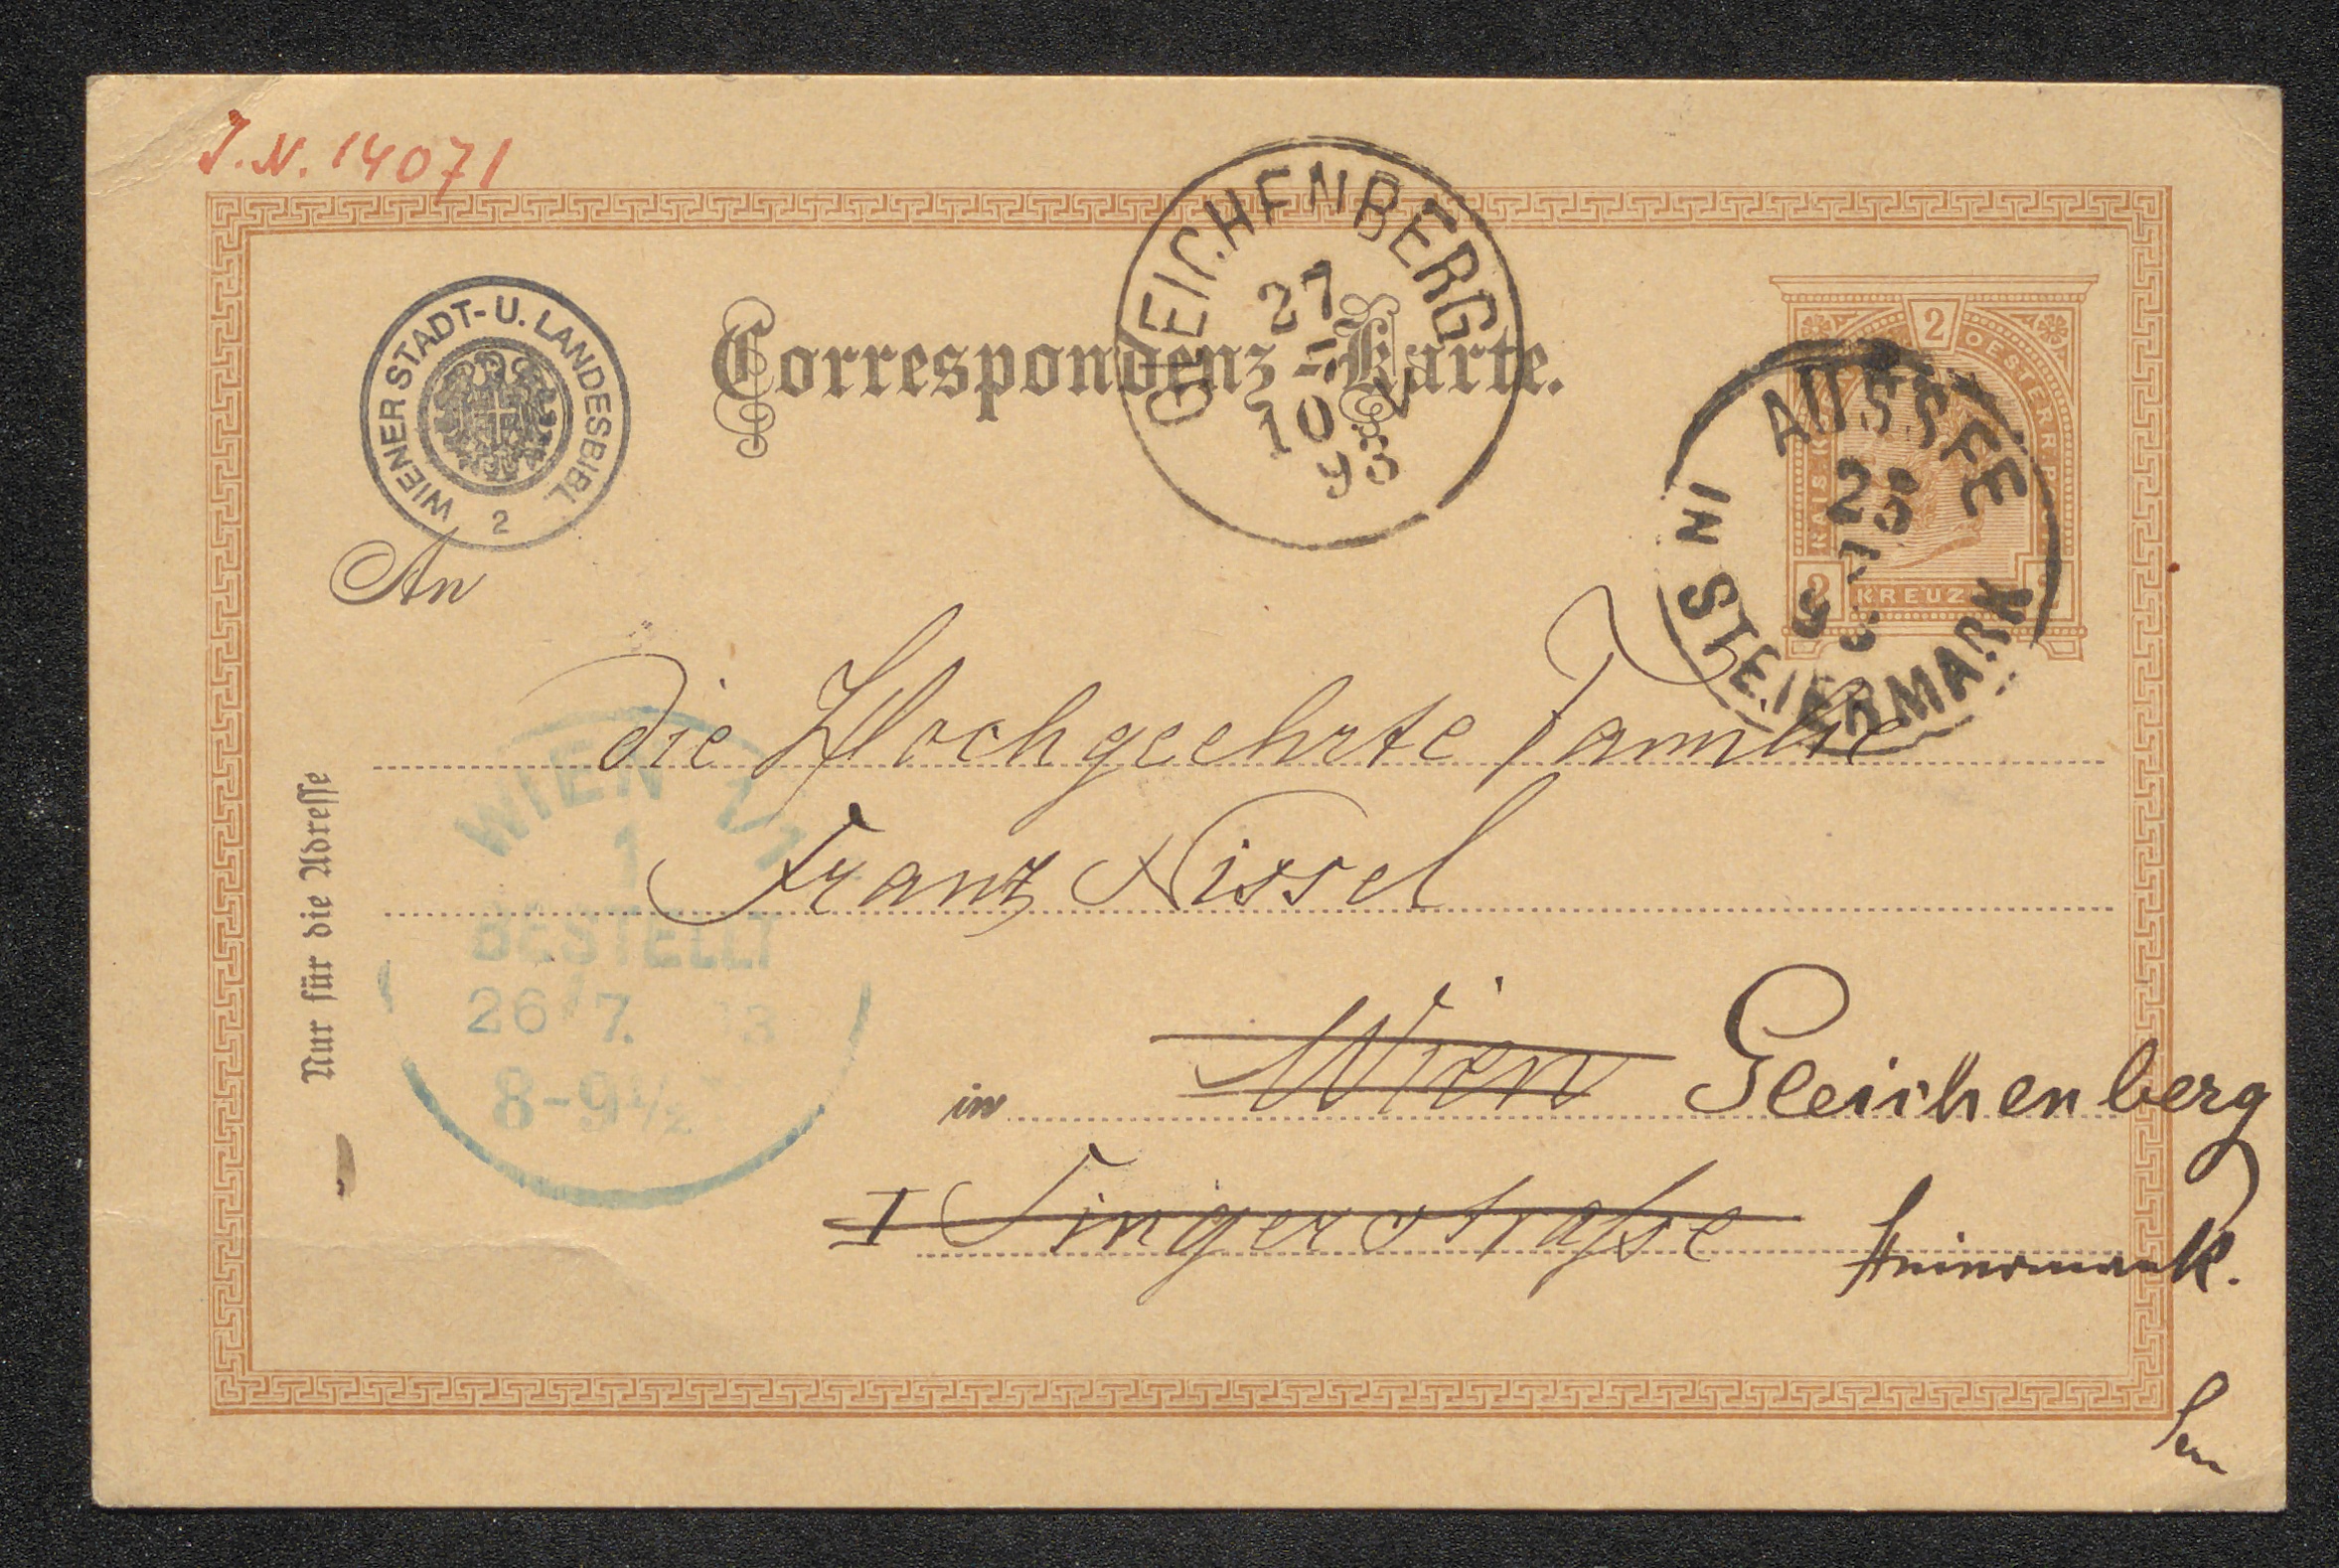 J.N. 14071
WIENER STADT- U. LANDESBIBL.
2
Correspondenz-Karte.
GLEICHENBERG
27
7
10
93
2
OESTERR.
KAIS. K.
2 KREUZ
AUSSEE
IN STEIERMARK
25
7
93
An
die Hochgeehrte Familie
Franz Nissel
WIEN 1/1
1
BESTELLT
26 7. 93
8-9 1/2
Nur für die Adresse
in Wien Gleichenberg
I Singerstraße Steiermark.